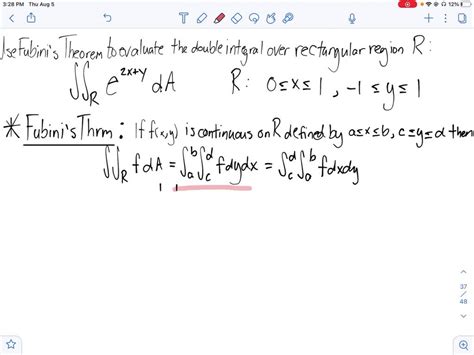 3:28 PM Thu Aug 5
12%
UseFubini's Theorem to evaluate the double integral over rectangular region R:
∬_R e^{2x+y} dA R: 0≤x≤1, -1≤y≤1
* Fubini's Thrm: If f(x,y) is continuous on R defined by a≤x≤b, c≤y≤d then
∬_R fdA = ∫_a^b ∫_c^d fdydx = ∫_c^d ∫_a^b fdxdy
1 1
37
48